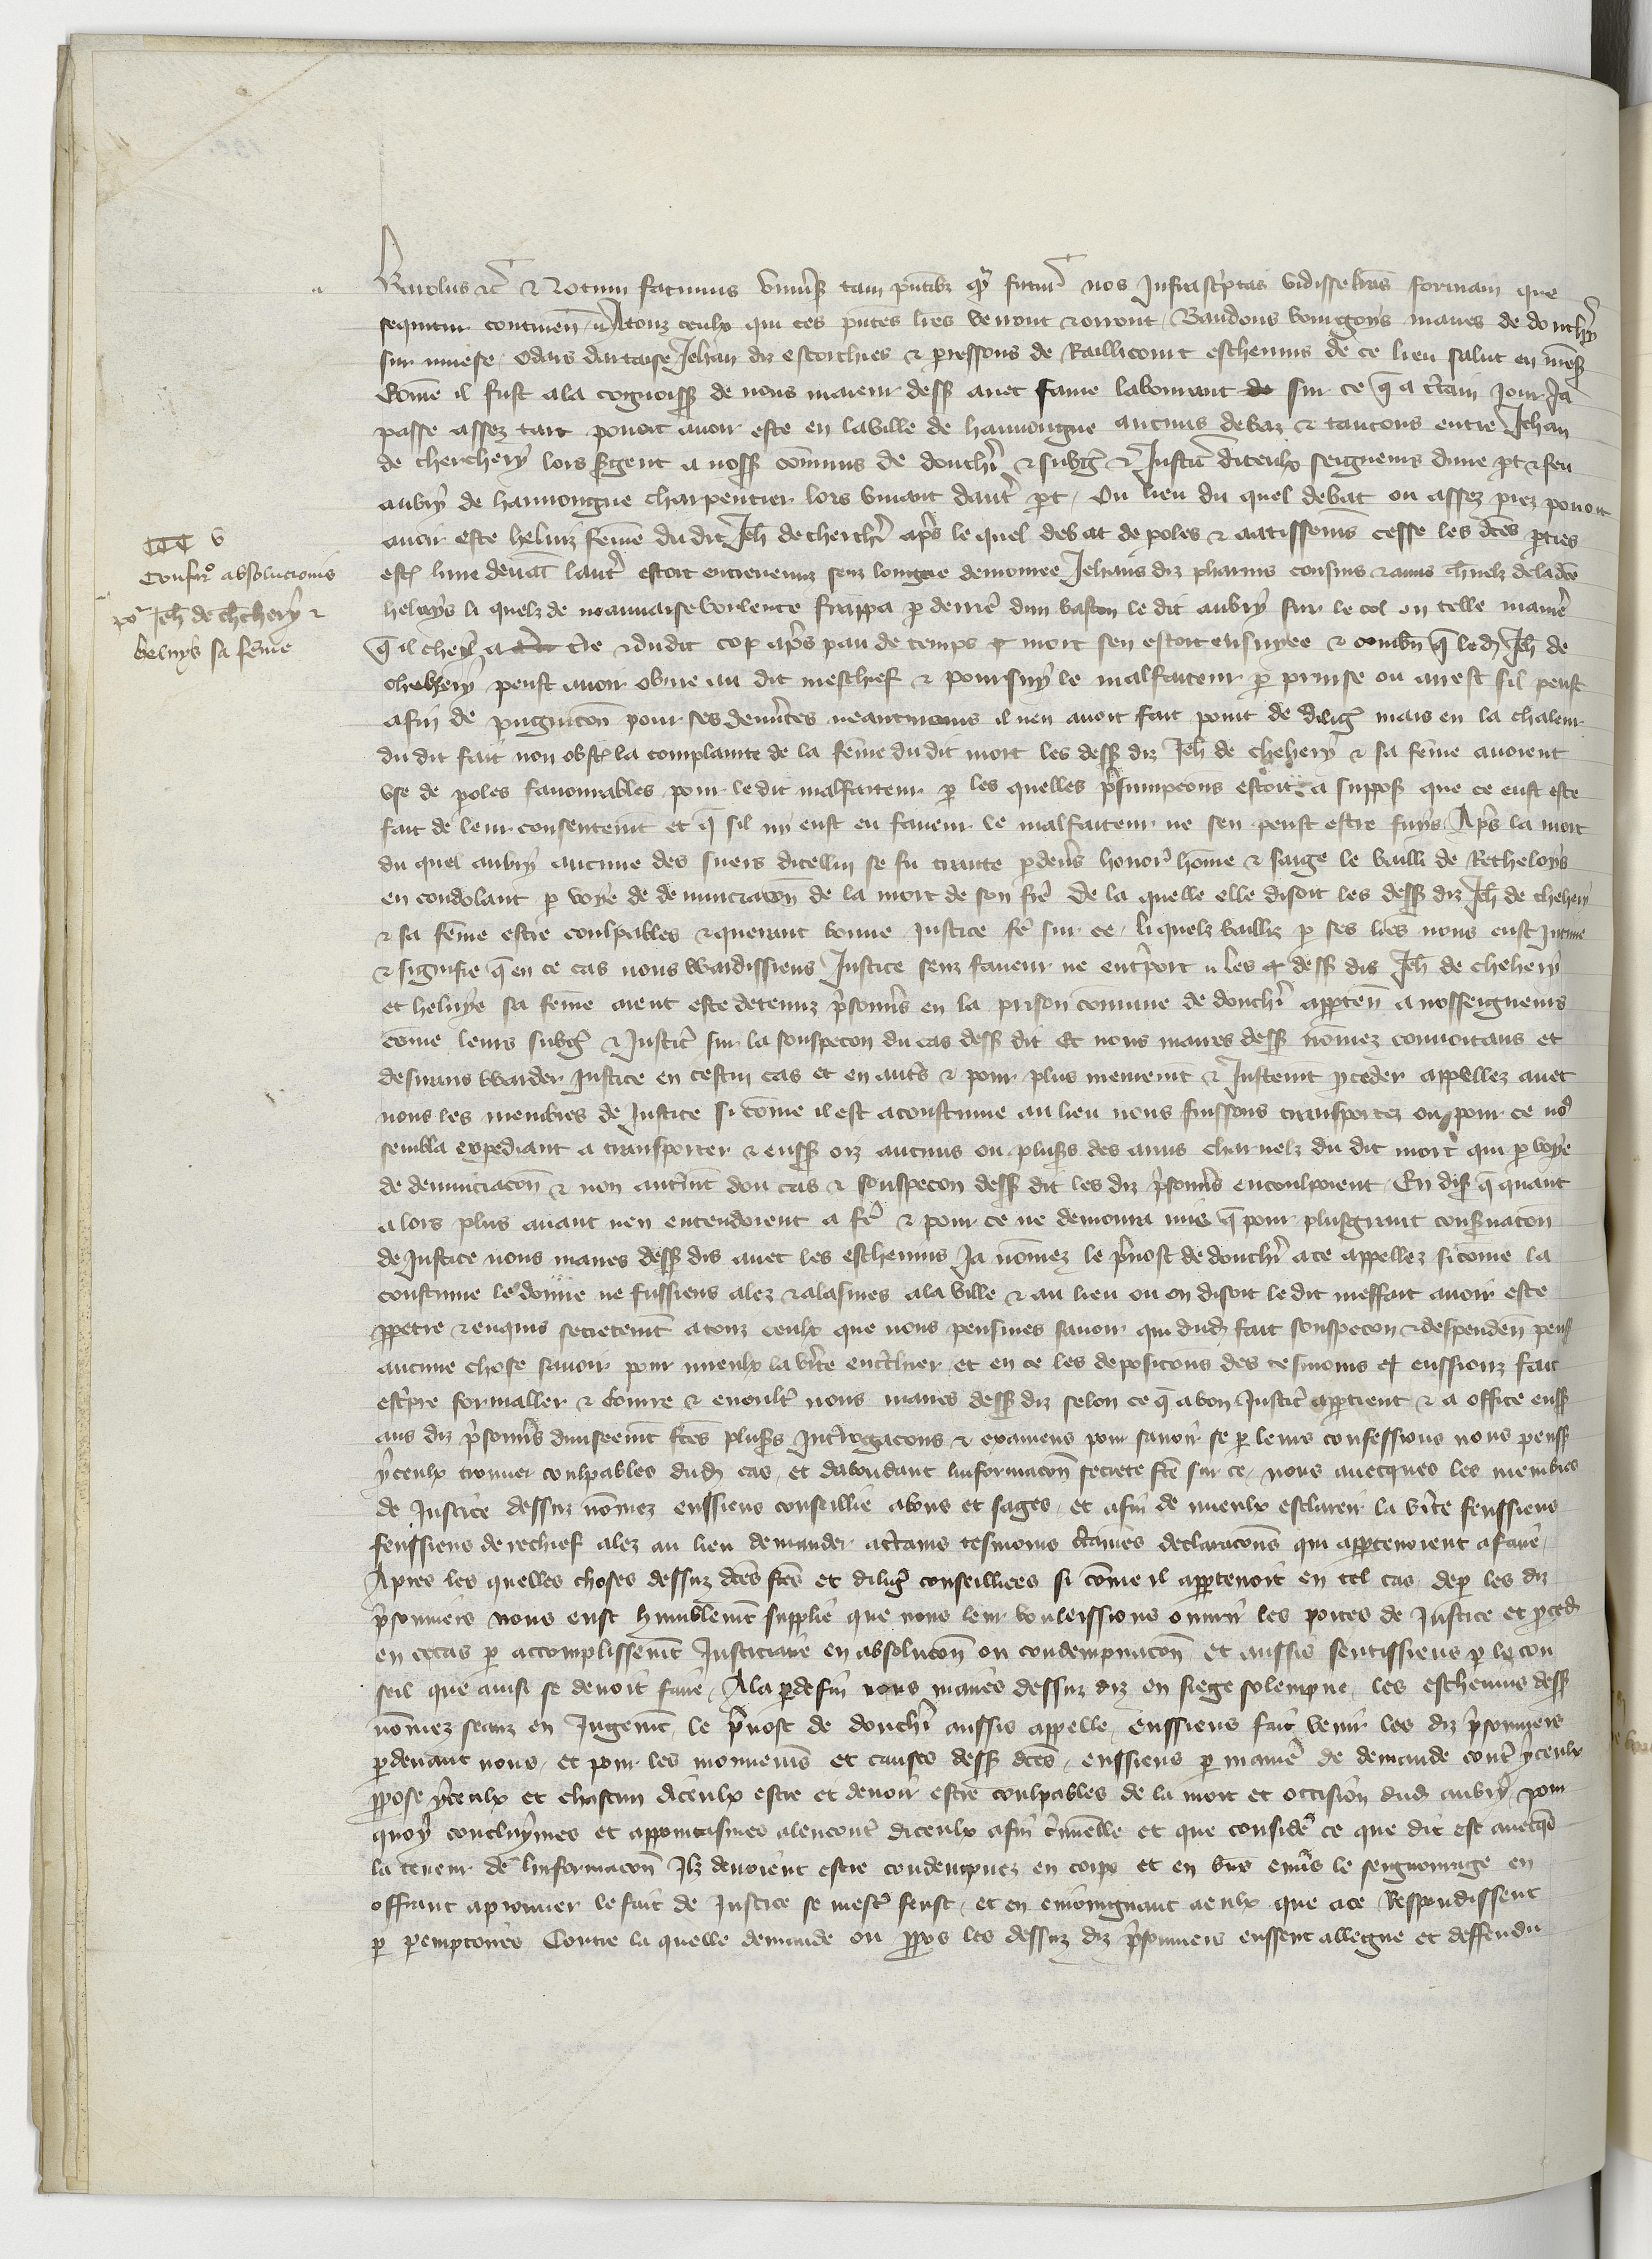 Karolus etc̃ & Notum facimus univ̾sis tam p̃ntibz q̃ futur̾ nos Infrascriptas vidisse lr̃as formam que
sequitur continen̄ // Atouz ceulx qui ces p̃ntes lr̃es verront & orront Baudons bourgoys maires de donchery
sur muese. Odars dartaise Jehan diz escorchies & pressons de Raillicourt eschevins de ce lieu salut en
Com̃e il fust ala cognoiss̃ de nous maieur dess̃ avec fame labourant sur ce q̃ a c̾tain jour Ja
passe assez tart povoit avoir este en laville de hannongne aucuns debaz & tancons entre Jehan
de cherchery lors s̾gent a noss̃ com̃uns de donch̾i & subg̾ & Justic̾ diceulx seigneurs dune p̱t & feu
aubry de hannongne charpentier lors vivant daut̾ p̱t / Ou lieu du quel debat ou assez prez povoit
avoir este heluiz fem̃e dudit Jeh̃ de cherch̾i ap̾s le quel debat de p̱oles & aatissemẽs cesse les dc̃es p̱ties
est̃ lune devãt laut̾ estoit entrevenuz senz longue demouree Jehans diz pharius cousins & amis ch̾nelz deladc̃e
heluys li quelz de mauvaise voulente frappa p̱ derrie dun baston le dit aubry sur le col en telle manie̾
q̃ il chey a t̾re & dudit cop ap̾s pau de temps mort sen estoit ensuyee & combn̄ q̃ led̾ Jeh̃ de
chehery peust avoir obvie au dit meschief & poursuy le malfaiteur p̱ prinse ou arrest sil peust
afin de pugnicõn pour ses dem̾ites neantmoins il nen avoit fait point de dilig̾ mais en la chaleur
du dit fait non obst̃ la complainte de la fem̃e dudit mort les dess̃ diz Jeh̃ de chehery & sa fem̃e avoient
use de p̱oles favourables pour ledit malfaiteur p̱ les quelles p̾sumpcons estoit a suppos̾ que ce eust este
fait de leur consentemt̃ et q̃ sil ny eust eu faveur le malfaiteur ne sen peust estre fuys / Ap̾s la mort
du quel aubry aucune des suers dicellui se fu traitte p̱dev̾s honor̾ hom̃e & saige le bailli de Retheloys
en condolant p̱ voye de denunciacõn de la mort de son fre̾ De la quelle elle disoit les dess̃ diz Jeh̃ de chehery
& sa fem̃e estre coulpables & querant bonne Justice fe̾ sur ce / li quelz bailliz p̱ ses lr̃es nous eust
& signifie q̃ en ce cas nous wardissiens Justice senz faveur ne ent̾port // les dess̃ dis Jeh̃ de chehery
et heluye sa fem̃e aient este detenuz p̾sonn̾s en la prison com̃une de donch̾i app̱ten̄ a nosseigneurs
com̃e leurs subg̾ & Justic̾ sur la souspecon du cas dess̃ dit Et nous maires dess̃ nom̃ez convoitans et
desirans warder Justice en cestui cas et en aut̾s & pour plus meuremt̃ & Justemt̃ p̱ceder appellez avec
nous les menbres de Justice si com̃e il est acoustume au lieu nous fuissons transportez ou pour ce no⁹
sembla expediant a transporter & eusss̃ oiz aucuns ou plus̾s des amis charnelz du dit mort qui p̱ voye
de denunciacõn & non aut̾mt̃ dou cas & souspecon dess̃ dit les diz p̾sonn̾s encoulpoient / En dis̃ q̃ quant
alors plus avant nen entendoient a fe̾ & pour ce ne demoura mie q̃ pour plusgrant cons̾vacõn
de Justice nous maires dess̃ dis avec les eschevins Ja nom̃ez le p̾vost de donch̾i ace appellez sicom̃e la
coustume le donne ne fussiens alez & alasmes ala ville & au lieu ou on disoit ledit meffait avoir este
p̱petre & enquis secretemt̃ atouz ceulx que nous pensmes savoir qui dud̾ fait souspecon & despenden̄
aucune chose savoir pour mieulx la v̾ite encl̾iner et en ce les deposicons des tesmoins eussions fait
esc̾pre formaller & & enoult̾ nous maires dess̃ diz selon ce q̃ abon Justic̾ app̱tient & a office euss̃
aus diz p̾sonn̾s diuseemt̃ fc̃es plus̾s Int̾rogacons & examens pour savoir se p̱ leurs confessions nous peuss̃
yceulx trouver coulpables dud̾ cas, et dabondant linformacõn secrete fc̃e sur ce, nous avecques les menbres
de Justice dessuz nom̃ez eussiens conseillie abons et sages, et afin de mieulx esclarcir la v̾ite feussiens
feussiens de rechief alez au lieu demander ac̾tains tesmoins c̾taines declaracõns qui app̱tenoient afaire,
Apres les quelles choses dessuz dc̃es fc̃es et dilig̾ conseilliees si com̃e il app̱tenoit en tel cas, dep̱ les diz
p̾sonniers nous eust humblemt̃ supplie que nous leur voulessions ouvrir les portes de Justice et p̱ced̾
en cecas p̱ accomplissemt̃ Justiciaire en absolucõn ou condempnacõn et aussis sentissiens p̱ le con
seil que ainsi se devoit faire, Ala p̱defin nous maires dessuz diz en siege solempne, les eschevins dess̃
nom̃ez seanz en Jugemt̃, le p̾vost de donch̾i aussis appelle, eussiens fait venir les diz p̾sonniers
p̱devant nous, et pour les monemens et causes dess̃ dc̃es, eussiens p̱ manie̾ de demande cont̾ yceulx
p̱pose yceulx et chascun diceulx estre et devoir estre coulpables de la mort et occision dud̾ aubry, pour
quoy concluysmes et appointasmes alencont̾ diceulx afin c̾iminelle et que consid̾e ce que dit est avecq̃s
la teneur de linformacõn Ilz devoient estre condempnez en corps et en biens env̾s le seignourage en
offrant aprouver le fait de Justice se mest̾ feust, et en enioingnant aeulx que ace Respondissent
p̱ p̱emptoires Contre la quelle demande ou p̱pos les dessuz diz p̾sonniers eussent allegue et deffendu
CCC V
Conf̾ir̾o absolucionis
po̾ Jeh̃ de chehery &
heluys sa fem̃e